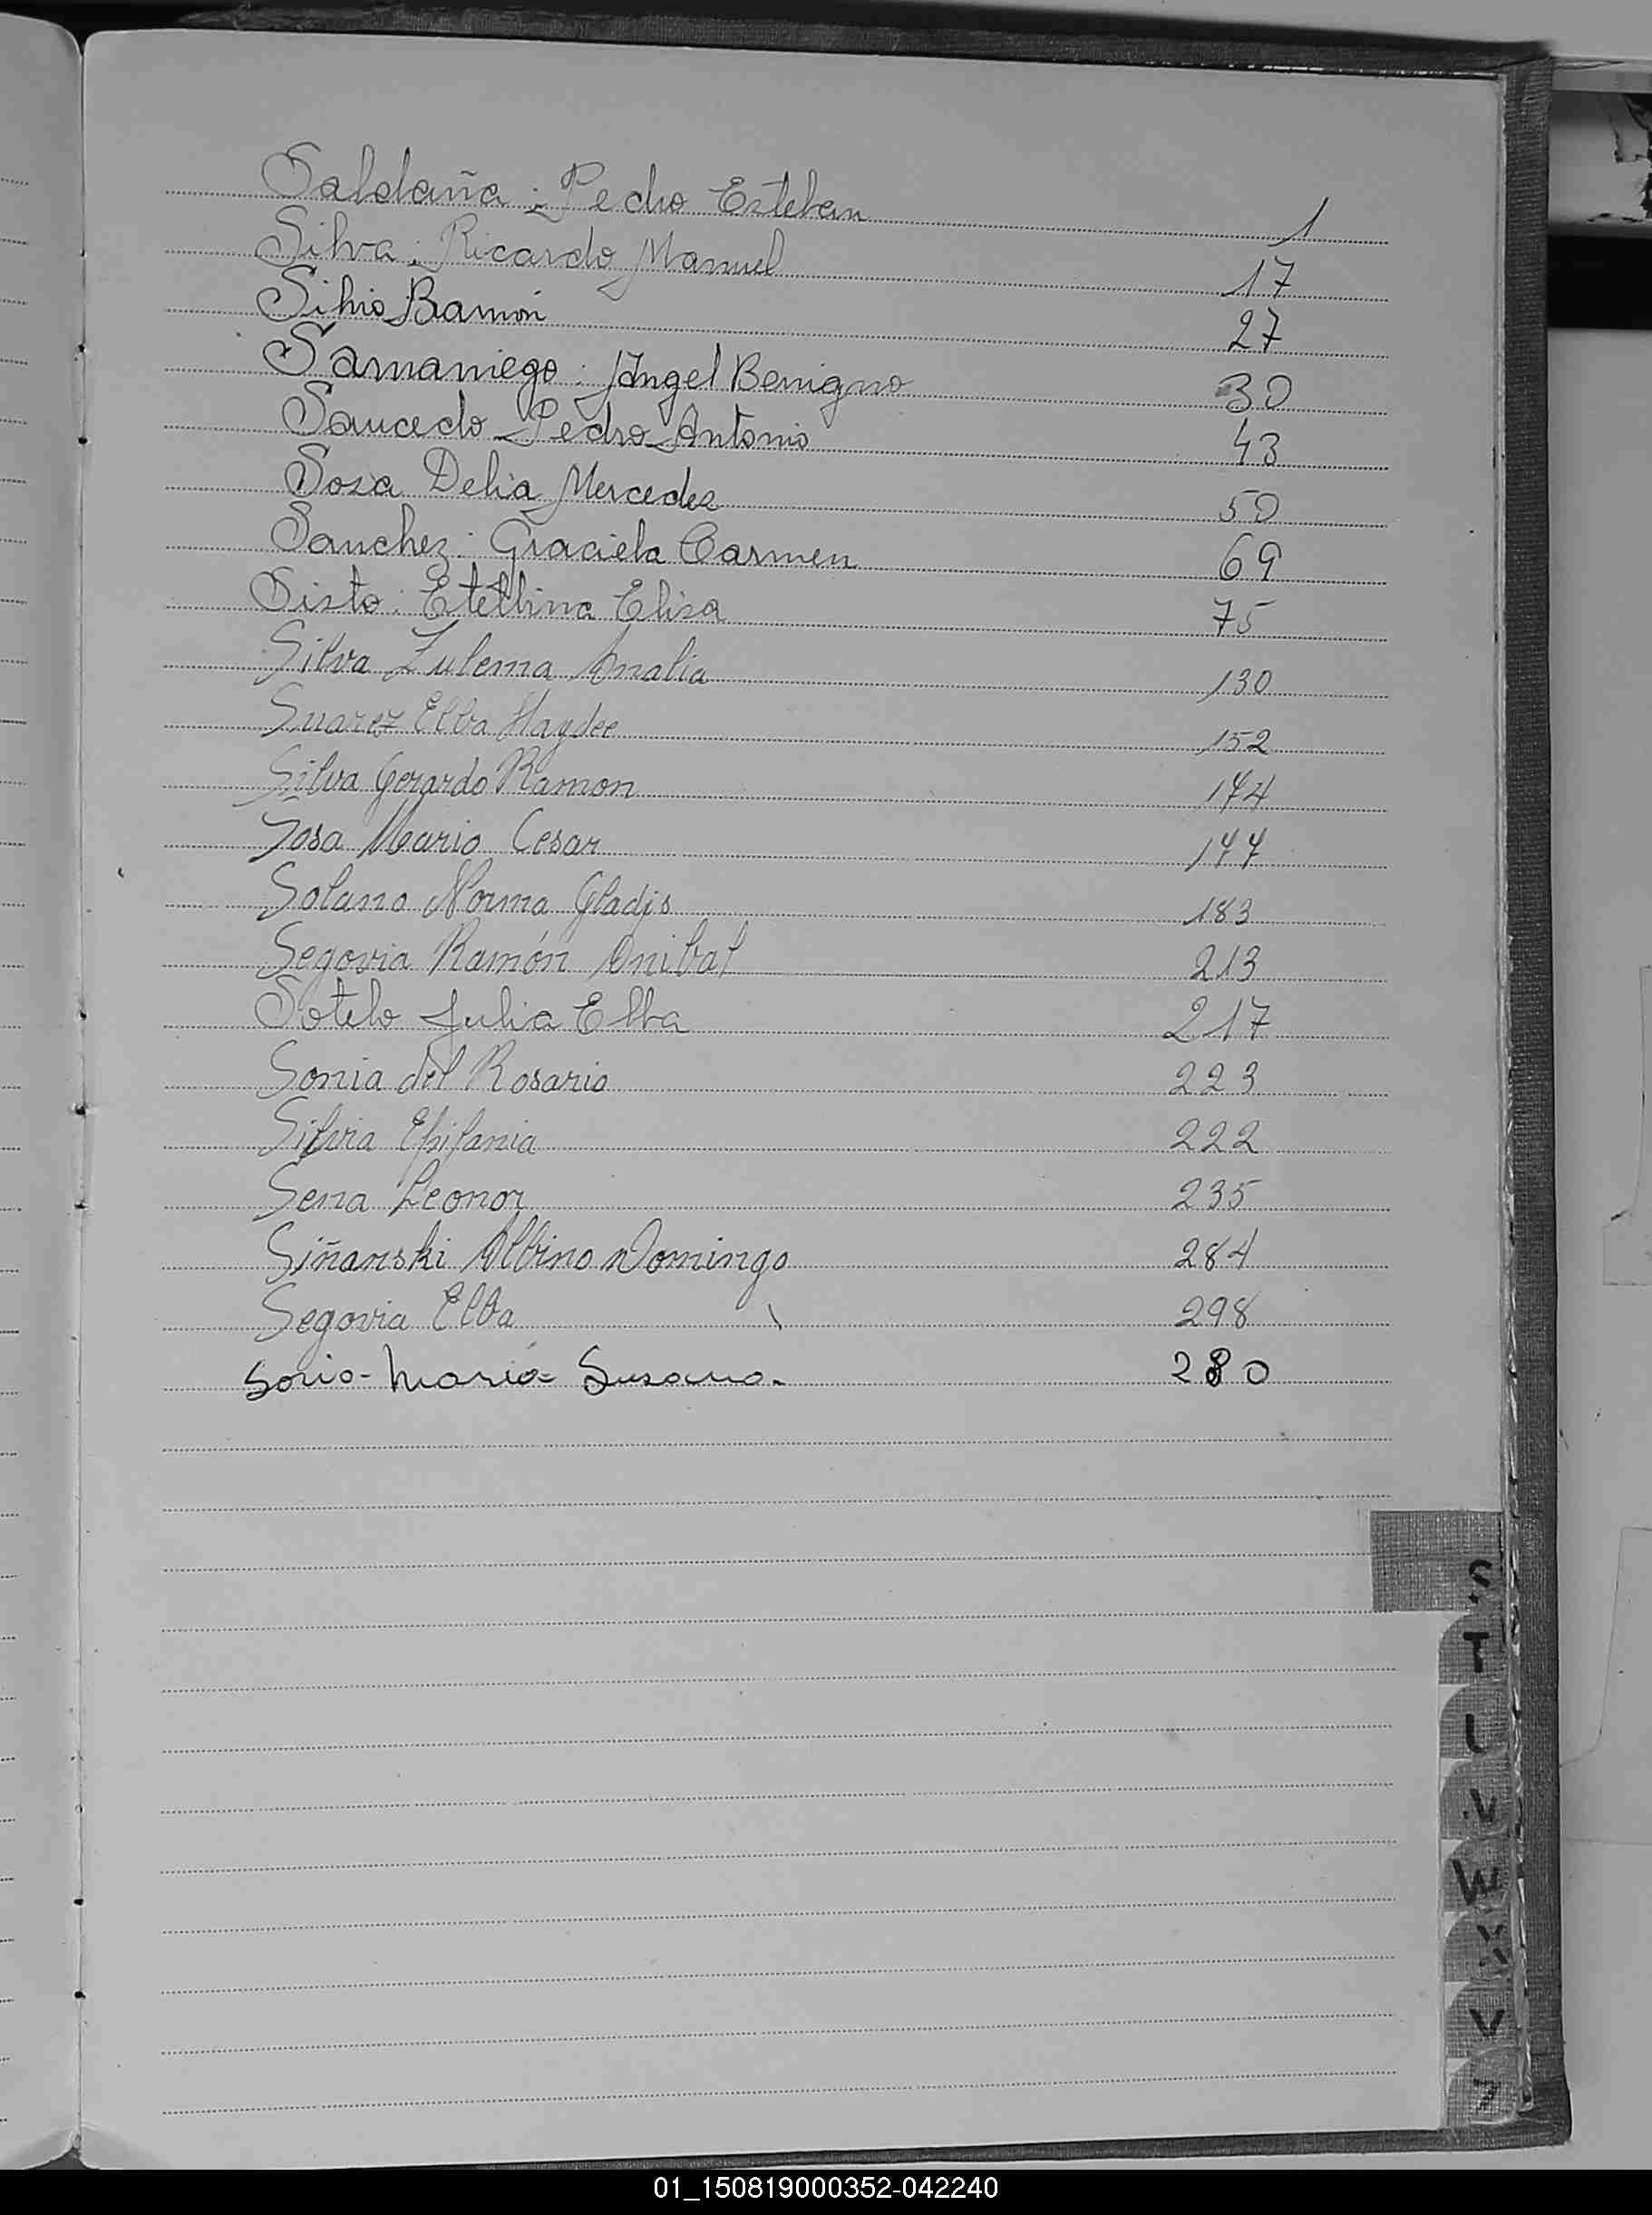 Saldaña: Pedro Esteban 1
Silva: Ricardo Manuel 17
Silvio Ramón 27
Samaniego: Angel Benigno 30
Saucedo Pedro Antonio 43
Sosa Delia Mercedes 50
Sanchez: Graciela Carmen 69
Sisto: Estellina Elisa 75
Silva Zulema Analia 130
Suarez Elba Haydee 152
Silva Gerardo Ramon 174
Sosa Mario Cesar 177
Solano Norma Gladis 183
Segovia Ramón Anibal 213
Sotelo Julia Elba 217
Sonia del Rosario 223
Silvia Epifania 222
Sena Leonor 235
Siñanski Albino Domingo 284
Segovia Elba 298
Soño- Maria- Susana. 280
S
T
U
V
W
X
Y
Z
01_150819000352-042240